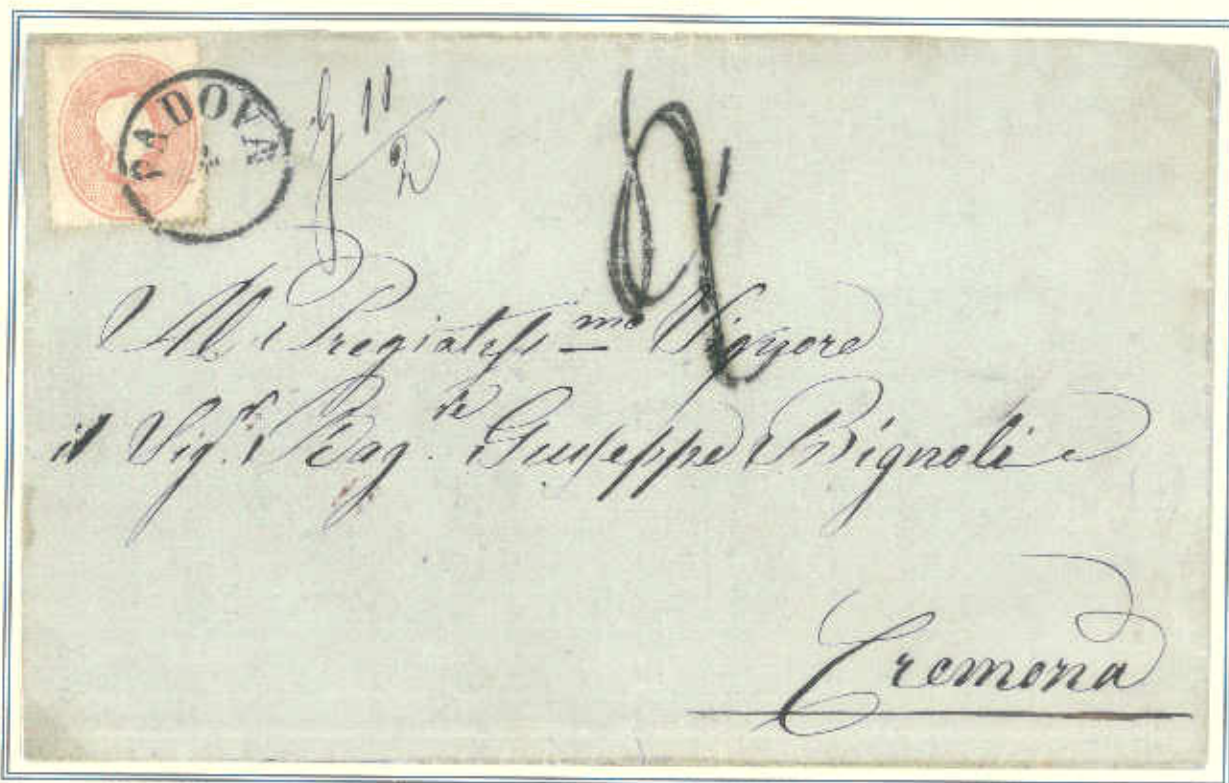 PADOVA
Al Pregiatiss.mo Signore
il Sig.r Rag.re Giuseppe Bignoli
Cremona